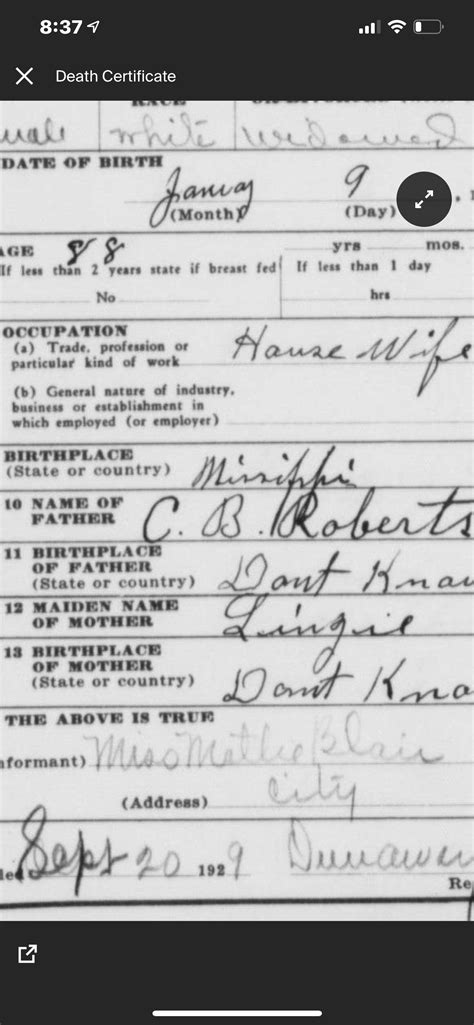 8:37
Death Certificate
RACE
male white widowed
DATE OF BIRTH
January 9
(Month) (Day)
AGE 88 yrs mos.
If less than 2 years state if breast fed If less than 1 day
No hrs
OCCUPATION
(a) Trade, profession or
particular kind of work House Wife
(b) General nature of industry,
business or establishment in
which employed (or employer)
BIRTHPLACE
(State or country) Missippi
10 NAME OF
FATHER C. B. Roberts
11 BIRTHPLACE
OF FATHER
(State or country) Dont Know
12 MAIDEN NAME
OF MOTHER Lingie
13 BIRTHPLACE
OF MOTHER
(State or country) Dont Kno
THE ABOVE IS TRUE
nformant) Miss Mettie Blair
(Address) City
Sept 20 1929
Re